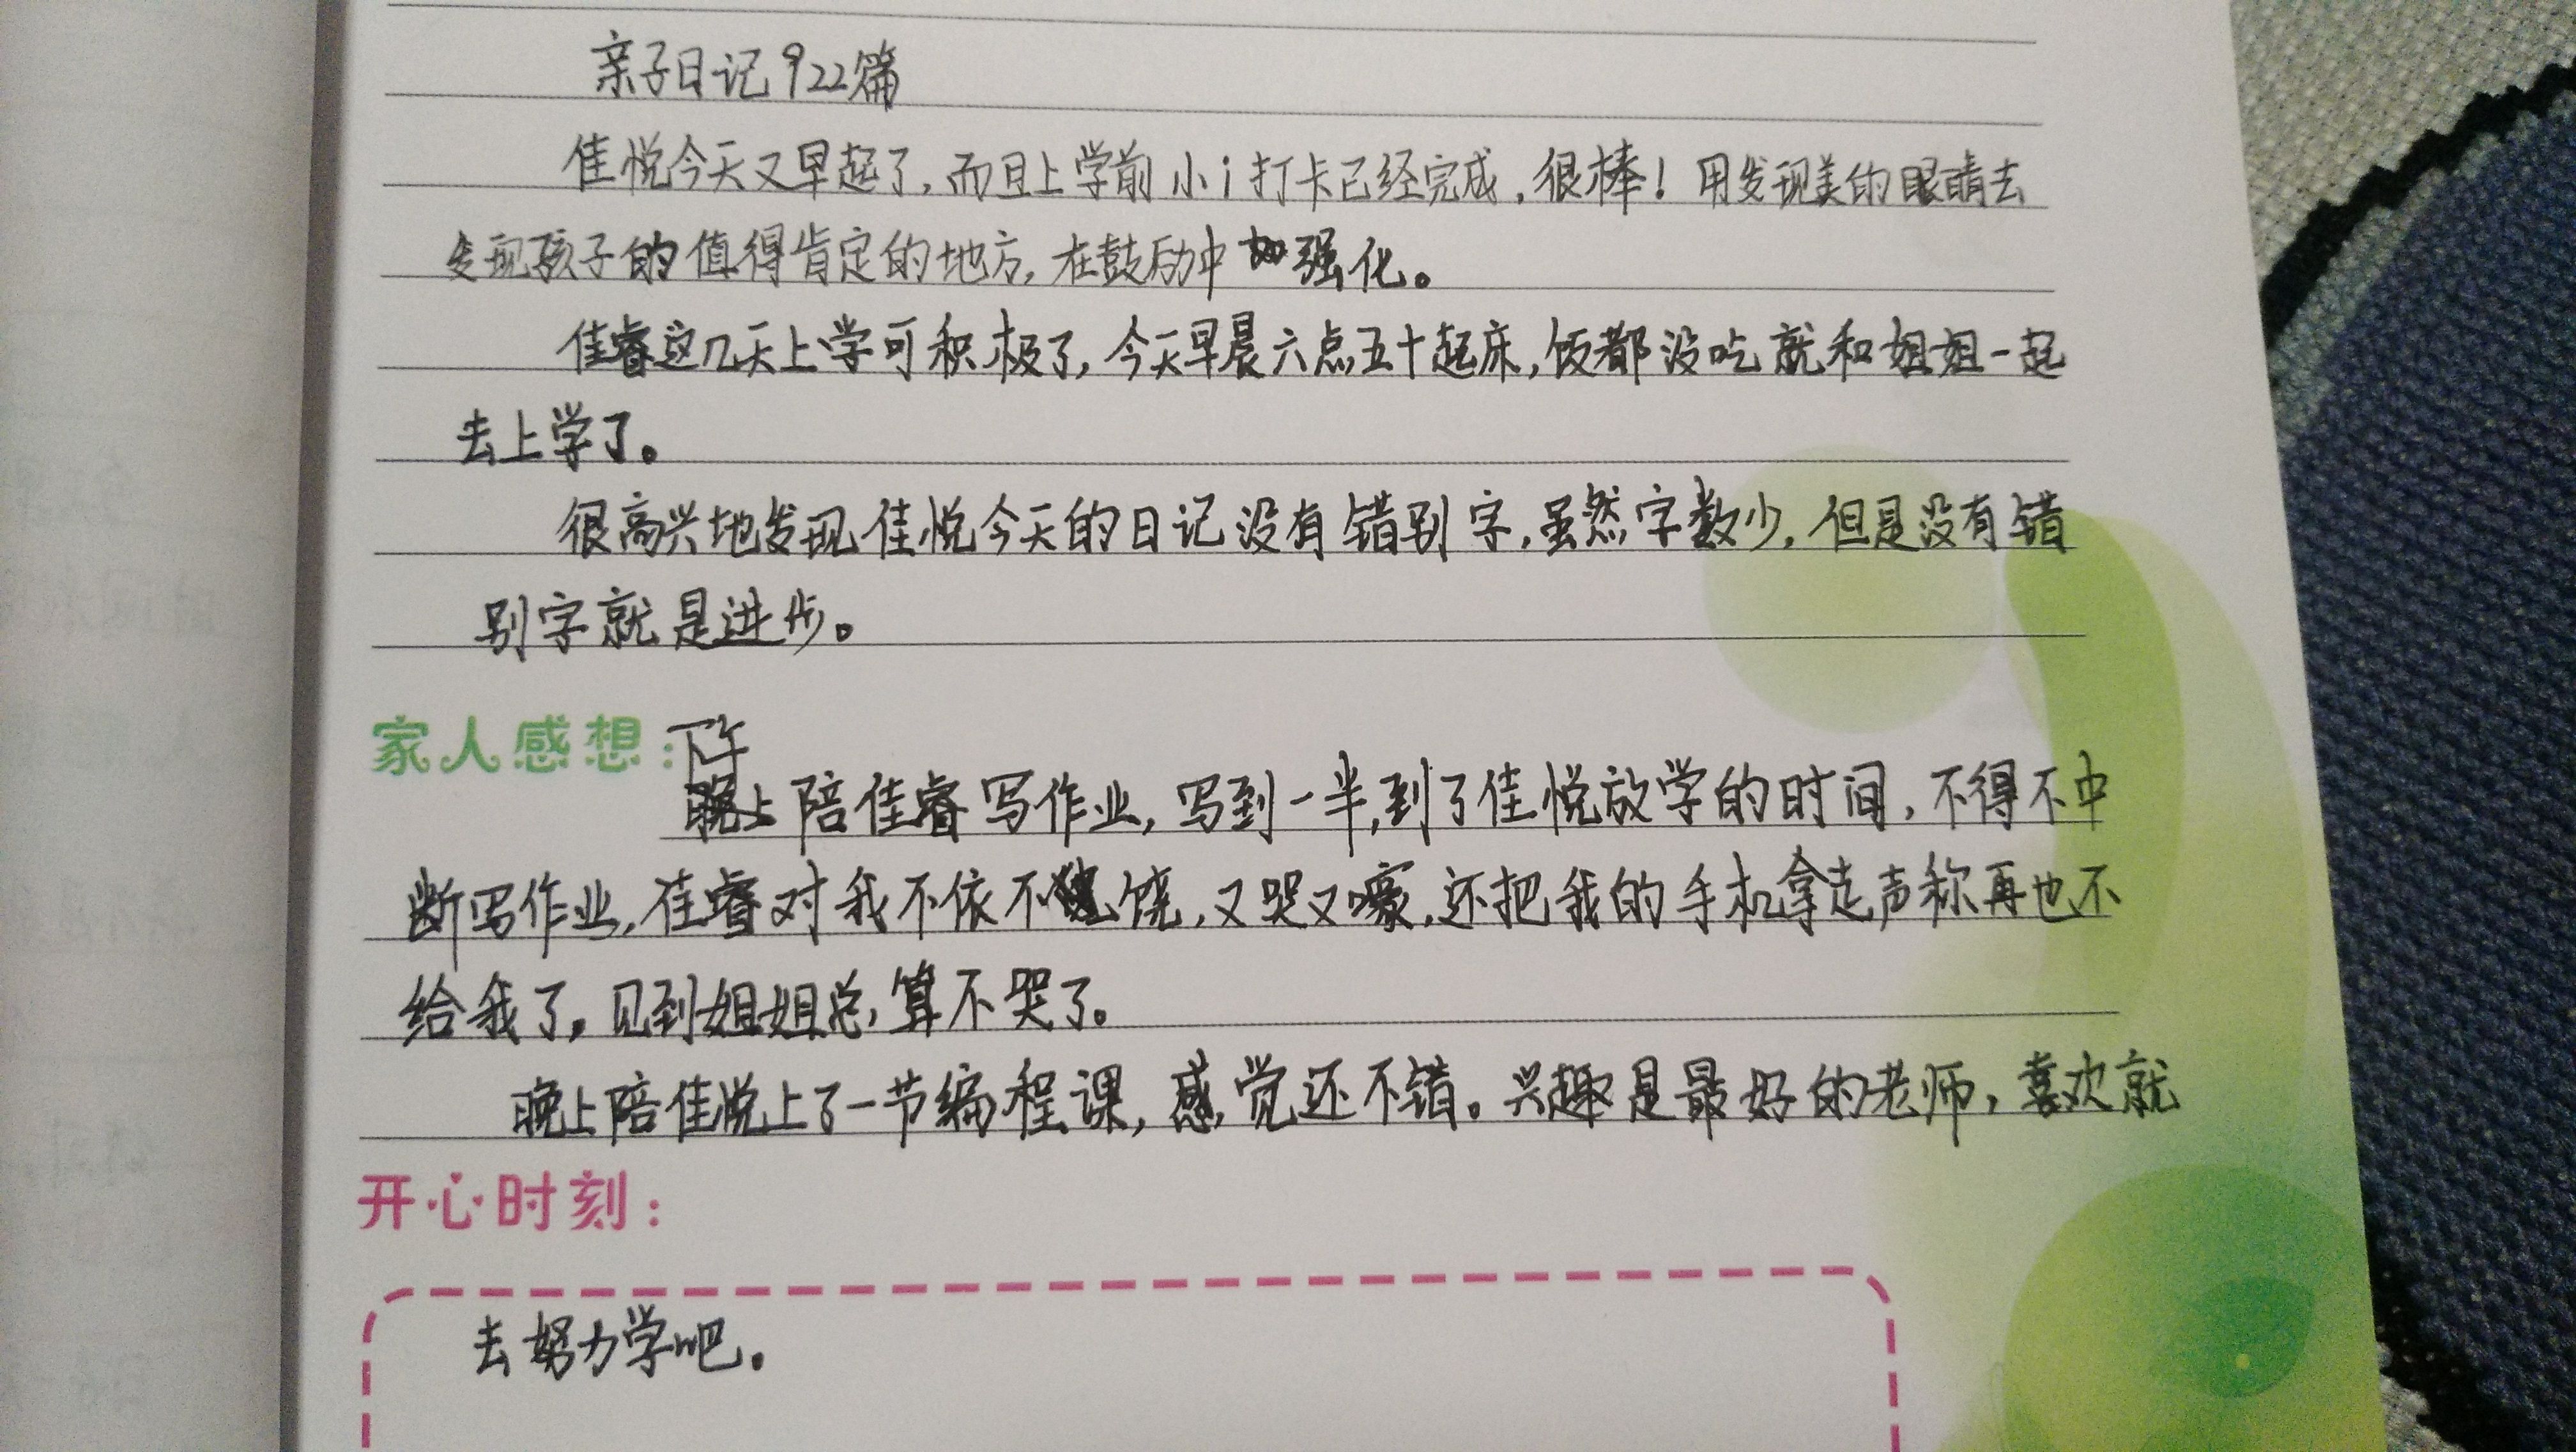 亲子日记922篇
佳悦今天又早起了,而且上学前小i打卡已经完成,很棒!用发现美的眼睛去
发现孩子的值得肯定的地方,在鼓励中加强化。
佳睿这几天上学可积极了,今天早晨六点五十起床,饭都没吃就和姐姐一起
去上学了。
很高兴地发现佳悦今天的日记没有错别字,虽然字数少,但是没有错
别字就是进步。
家人感想:下午
晚上陪佳睿写作业,写到一半,到了佳悦放学的时间,不得不中
断写作业,佳睿对我不依不饶,又哭又嚎,还把我的手机拿走声称再也不
给我了,见到姐姐总算不哭了。
晚上陪佳悦上了一节编程课,感觉还不错。兴趣是最好的老师,喜欢就
开心时刻:
去努力学吧.